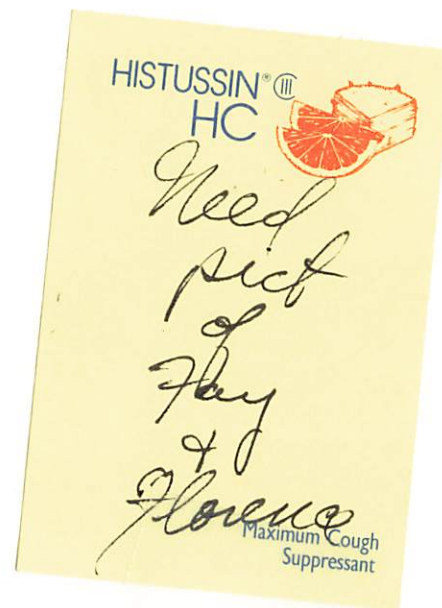 HISTUSSIN® CIII
HC
Need
pict
of
Fay
&
Florence
Maximum Cough
Suppressant